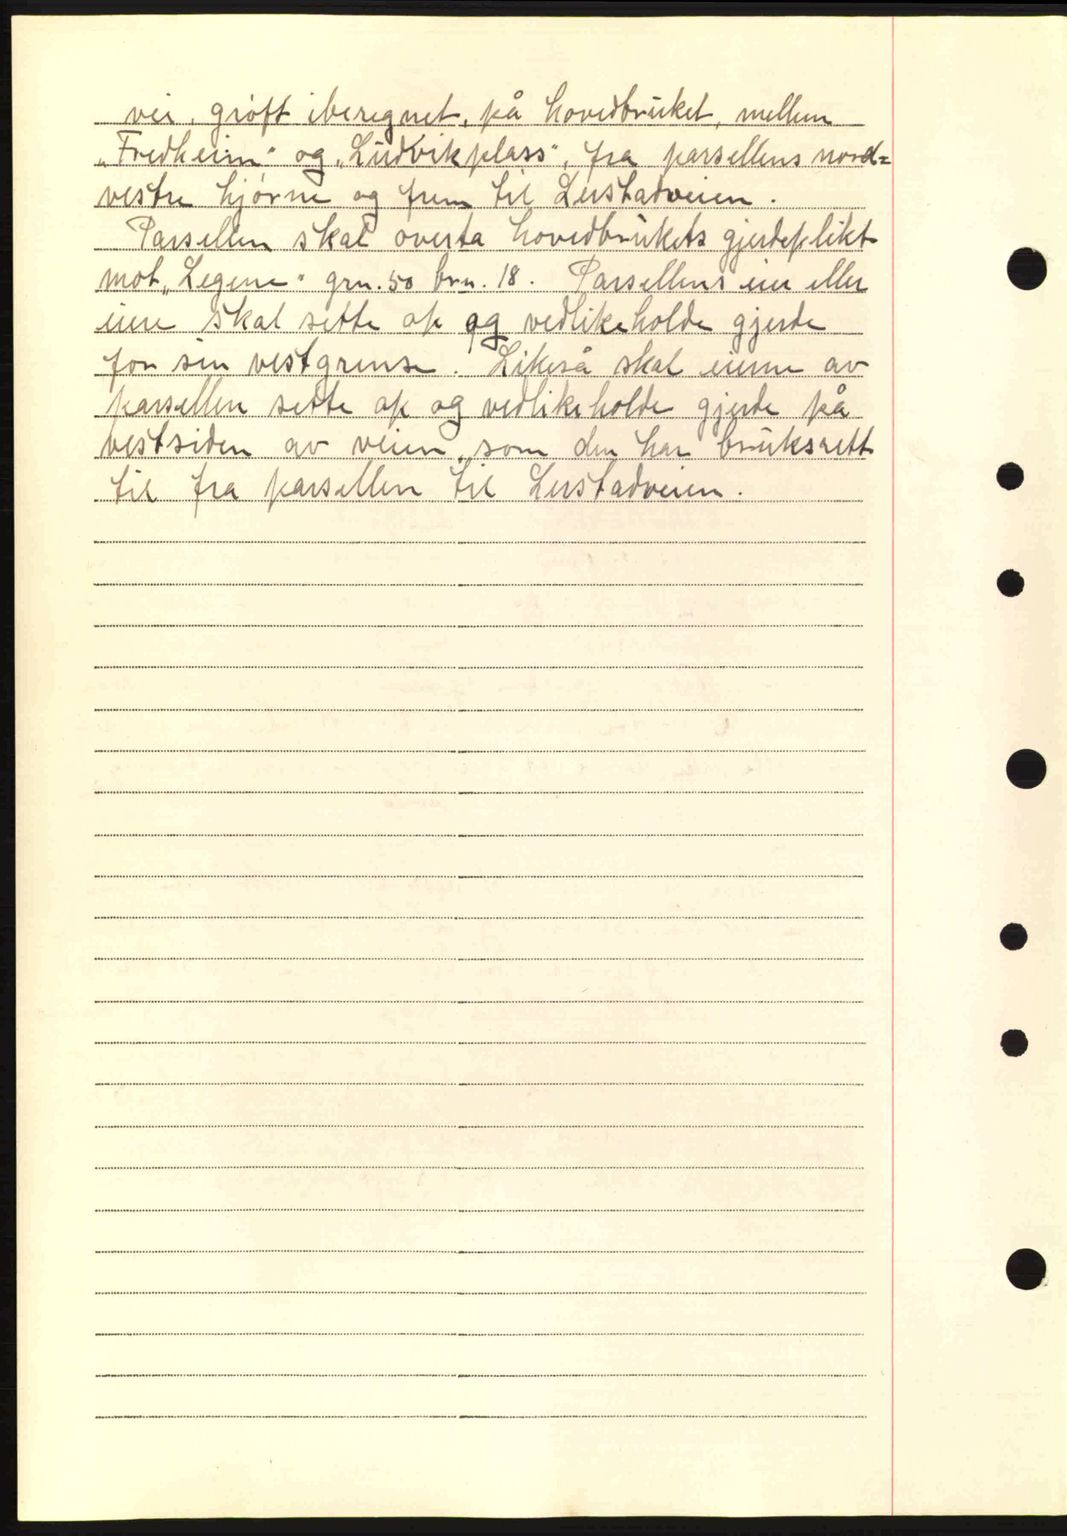 vei, grøft iberegnet, på hovedbruket, mellem
„Fredheim" og „Ludvikplass", fra parsellens nord=
vestre hjørne og frem til Lerstadveien.
Parsellen skal overta hovedbrukets gjerdeplikt
mot „Legene" grn. 50 brn. 18. Parsellens eier eller
eiere skal sette op og vedlikeholde gjerde
for sin vestgrense. Likeså skal eierne av
parsellen sette op og vedlikeholde gjerde på
vestsiden av veien, som den har bruksrett
til fra parsellen til Lerstadveien.